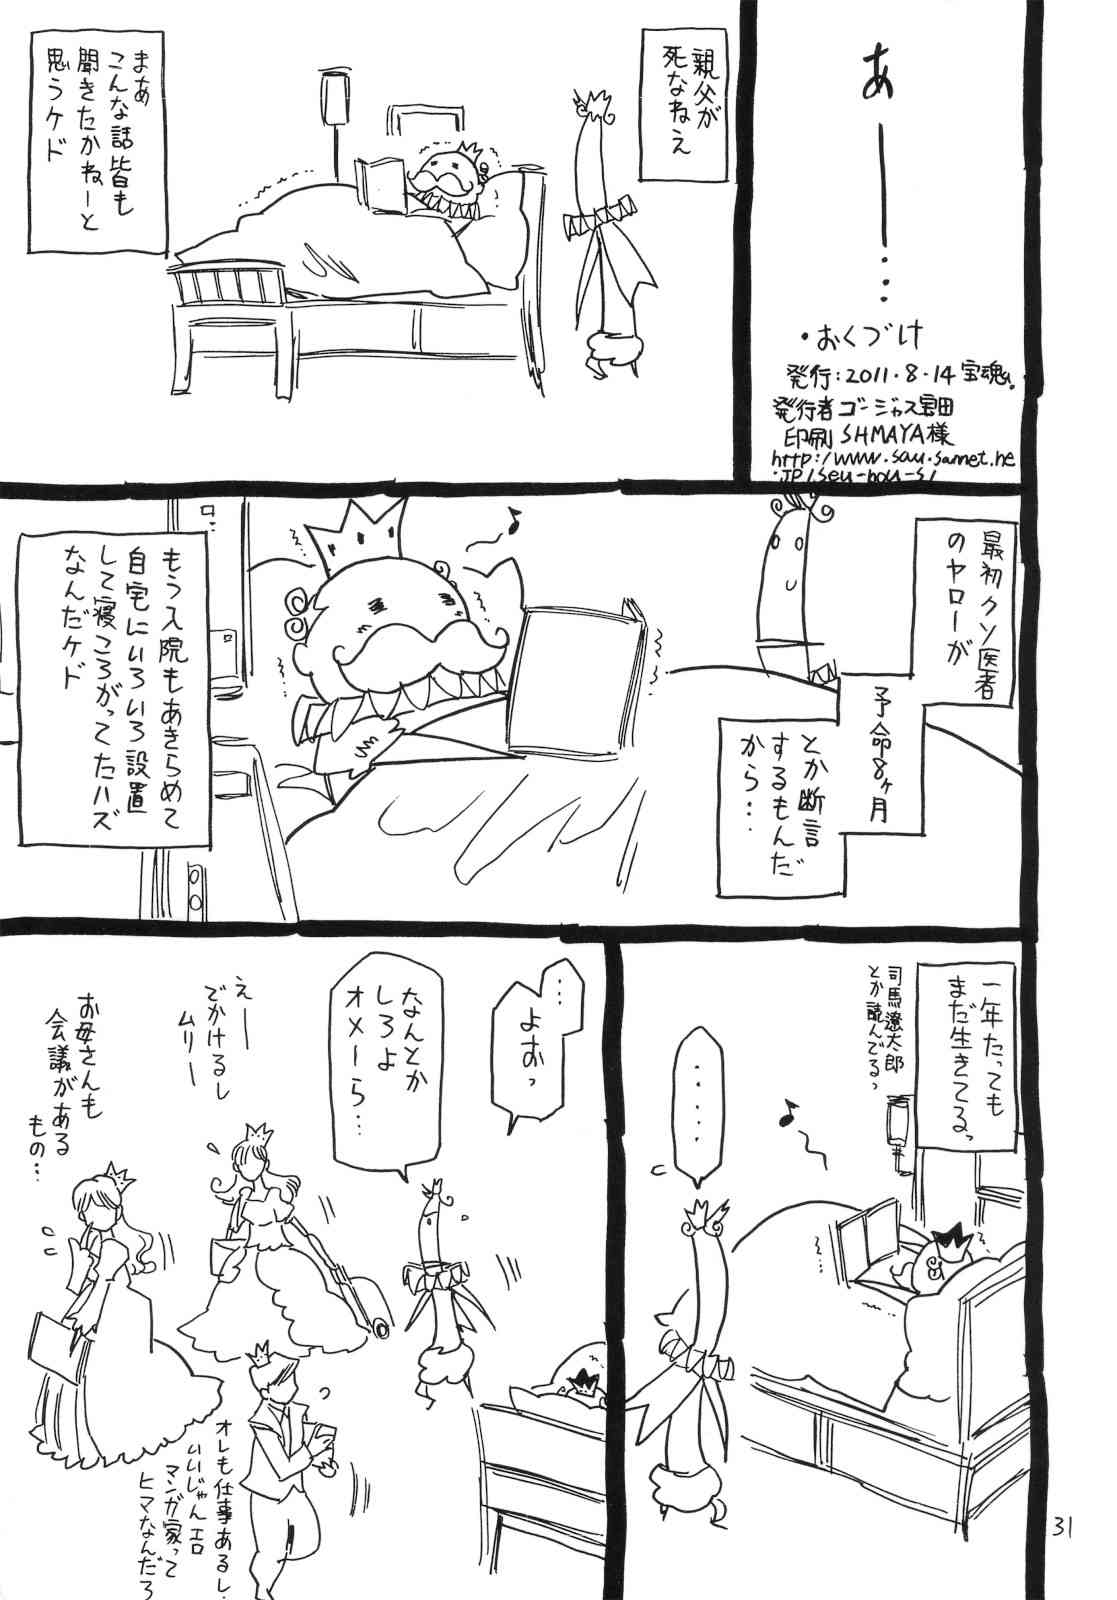 あ――…
・おくづけ
発行：2011・8・14 宝魂。
発行者 ゴージャス宝田
印刷 SHMAYA様
親父が
死なねえ
まあ
こんな話皆も
聞きたかねーと
思うケド
最初クソ医者
のヤローが
予命8ヶ月
とか断言
するもんだ
から…
もう入院もあきらめて
自宅にいろいろ設置
して寝ころがってたハズ
なんだケド
一年たっても
まだ生きてるっ
司馬遼太郎
とか読んでるっ
‥‥‥
…
よおっ
なんとか
しろよ
オメーら…
えー
でかけるし
ムリー
お母さんも
会議がある
もの…
オレも仕事あるし、
いいじゃんエロ
マンガ家って
ヒマなんだろ
31